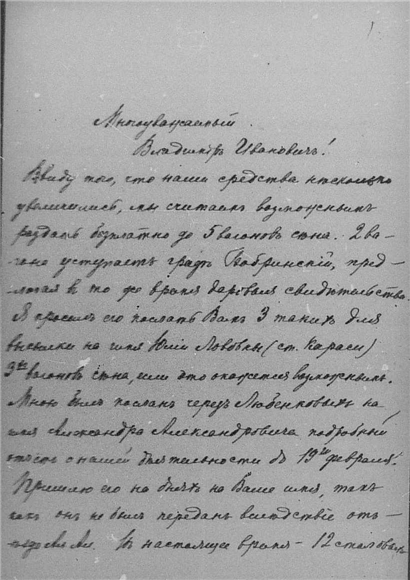 Многоуважаемый
Владиміръ Ивановичъ!
Ввиду того, что наши средства нѣсколько
увеличились, мы считаемъ возможнымъ
раздать безплатно до 5 вагоновъ сѣна. 2 ва-
гона уступаетъ графъ Бобринскій, пред-
лагая въ то же время даровыя свидѣтельства.
Я просилъ его послать Вамъ 3 такихъ для
высылки на имя Юліи Львовны (ст. Караси)
3хъ вагоновъ сѣна, если это окажется возможнымъ.
Мною былъ посланъ черезъ Любенковыхъ на
имя Александра Александровича подробный
отчетъ о нашей дѣятельности до 19го февраля.
Пришлю его на дняхъ на Ваше имя, такъ
какъ онъ не былъ переданъ вслѣдствіе отъ-
Въ настоящее время - 12 столовыхъ